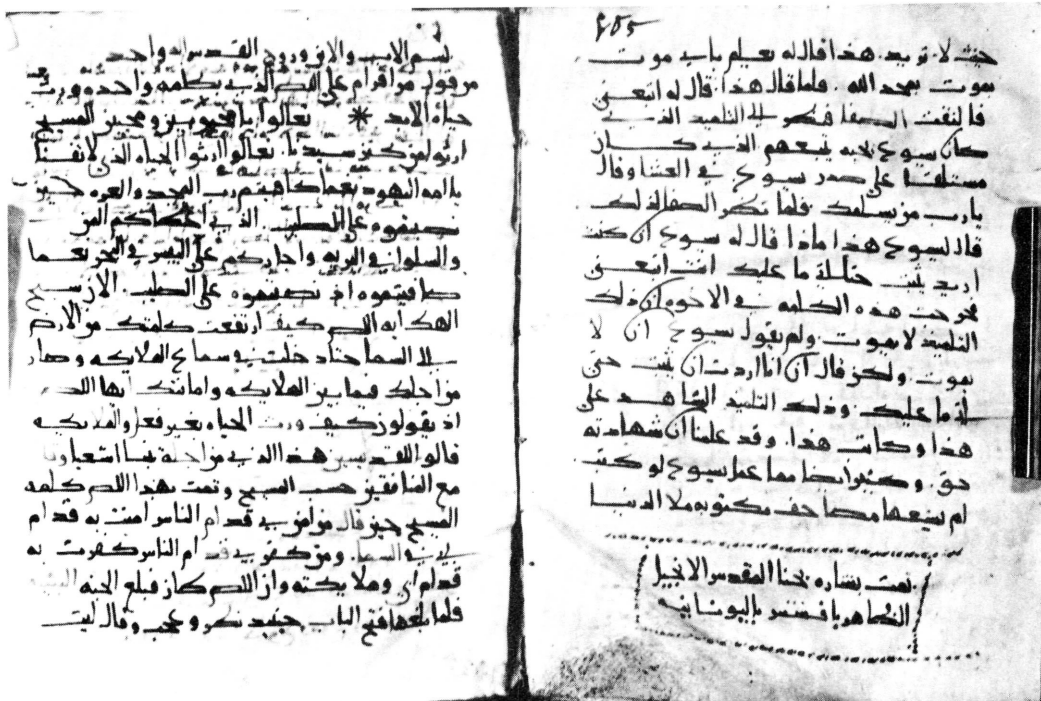 حيث لا تريد. هذا قال له يعلم باي موت
يموت يمجد الله. فلما قال هذا. قال له اتبعني
فالتفت الصفا فنظر الى التلميذ الذي
كان يسوع يحبه يتبعهم الذي كان
مستلقيا على صدر يسوع في العشا وقال
يارب من يسلمك فلما نظر الصفا لذلك
قال ليسوع هذا ماذا قال له يسوع ان كنت
اريد يثبت ما عليك انت اتبعني
فخرجت هذه الكلمه في الاخوه ان ذلك
التلميذ لا يموت ولم يقول يسوع ان لا
يموت ولكن قال ان انا اردت ان يثبت حتى
ما عليك وذلك التلميذ الشاهد على
هذا وكاتب هذا. وقد علمنا ان شهادته
حق. وكثير ايضا مما عمل يسوع لو كتب
لم يضعها مصاحف مكتوبه ملا الدنيا
تمت بشاره يحنا المقدس الانجيل
الطاهر باليونانيه
بسم الاب والابن وروح القدس اله واحد
من قول مر افرام على اللص الذي بكلمه واحده ورث
حياه الابد * تعالوا يا محبوبين ومحبين المسيح
ارثوا من كنز سيدنا. تعالوا ارثوا الحياه الذي لا تفنا
يا امه اليهود نعما كافيتم رب المجد والعزه حين
صلبتموه على الصليب. الذي اعطاكم المن
والسلوان في البريه واجازكم على اليبس في البحر نعما
كافيتموه اذ صلبتموه على الصليب الان نسبح
الهك ايه اللص كيف ارتفعت كلمتك من الارض
الى السما حتا دخلت في سماع الملايكه وصار
من اجلك فيما بين الملايكه وامانتك ايها اللص
اذ يقولون كيف ورث الحياه بغير فعل والملايكه
قالوا لقد تبين هذا الذي من اجله نبا اشعيا
مع المنافقين حسب المسيح وتمت بهذا اللص كلمه
المسيح حين قال من امن بي قدام الناس امنت به قدام
ابي في السما. ومن كفر بي قدام الناس كفرت به
قدام ابي وملايكته وان اللص كان فبلغ الجنه
فلما بلغها فتح الباب حينيذ نظر وعجب وقال ليت